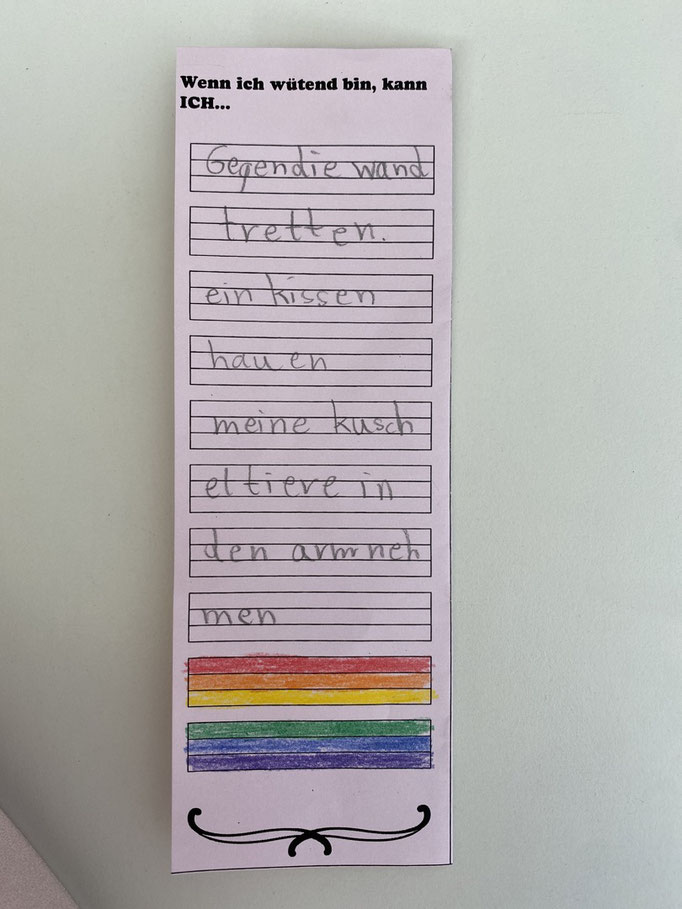 Wenn ich wütend bin, kann
ICH...
Gegendie wand
tretten.
ein kissen
hauen
meine kusch
eltiere in
den armneh
men